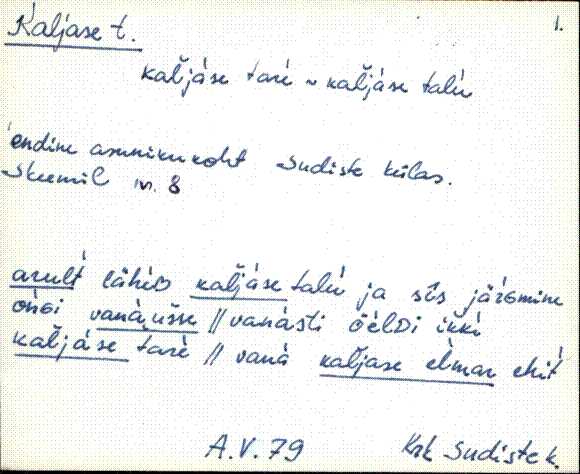 Kaljase t.
1.
kaĺjáse taŕè ~ kaĺjáse talù
endine asunikukoht Sudiste külas.
Skeemil nr. 8
arult lähäʙ kaĺjáse talù ja sìs järǝmine
oĺli vanàušse // vanasti öèlᴅi ikki
kaĺjáse taŕè // vanà kaĺjase elmar ehit
A.V. 79
Krk Sudiste k.